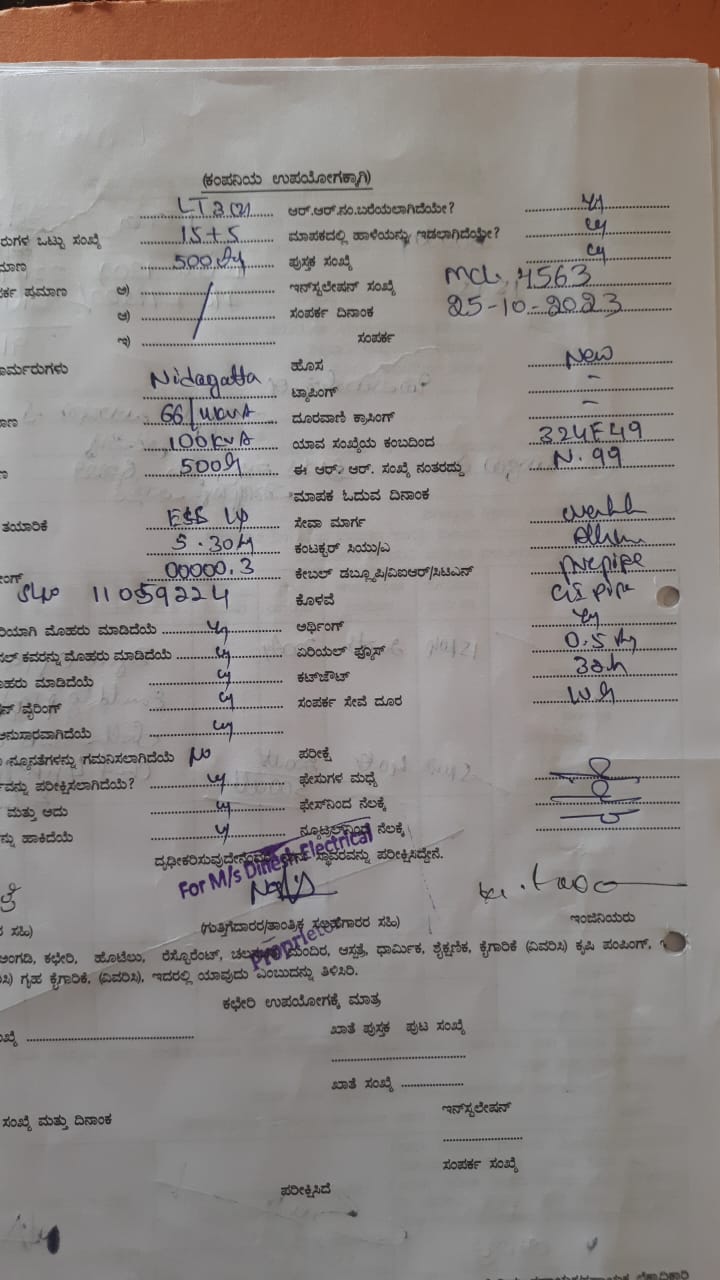 (ಕಂಪನಿಯ ಉಪಯೋಗಕ್ಕಾಗಿ)
LT 3 (2) ಆರ್.ಆರ್.ನಂ.ಬರೆಯಲಾಗಿದೆಯೇ?
ರುಗಳ ಒಟ್ಟು ಸಂಖ್ಯೆ 15+5 ಮಾಪಕದಲ್ಲಿ ಹಾಳೆಯನ್ನು ಇಡಲಾಗಿದೆಯೇ?
ಮಾಣ 500 ಪುಸ್ತಕ ಸಂಖ್ಯೆ
ರ್ಕ ಪ್ರಮಾಣ ಅ) ಇನ್‌ಸ್ಟಲೇಷನ್ ಸಂಖ್ಯೆ MCL 4563
ಆ) ಸಂಪರ್ಕ ದಿನಾಂಕ 25-10-2023
ಇ) ಸಂಪರ್ಕ
ಾರ್ಮರುಗಳು ಹೊಸ New
Nidagatta ಟ್ಯಾಪಿಂಗ್ -
ಾಣ 66/11KVA ದೂರವಾಣಿ ಕ್ರಾಸಿಂಗ್ -
100KVA ಯಾವ ಸಂಖ್ಯೆಯ ಕಂಬದಿಂದ 324F49
500 ಈ ಆರ್. ಆರ್. ಸಂಖ್ಯೆ ನಂತರದ್ದು N.99
ಮಾಪಕ ಓದುವ ದಿನಾಂಕ
ತಯಾರಿಕೆ ಸೇವಾ ಮಾರ್ಗ
5-30 ಕಂಟಕ್ಟರ್ ಸಿಯು/ಎ
ಂಗ್ 00000.3 ಕೇಬಲ್ ಡಬ್ಲ್ಯೂಪಿ/ವಿಐಆರ್/ಸಿಟಿಎನ್ pvc pipe
Slno 11059224 ಕೊಳವೆ GI pipe
ರಿಯಾಗಿ ಮೊಹರು ಮಾಡಿದೆಯೆ ಅರ್ಥಿಂಗ್
ಲ್ ಕವರನ್ನು ಮೊಹರು ಮಾಡಿದೆಯೆ ಏರಿಯಲ್ ಫ್ಯೂಸ್ 0.5
ೊಹರು ಮಾಡಿದೆಯೆ ಕಟ್‌ಔಟ್ 32
ನ್ ವೈರಿಂಗ್ ಸಂಪರ್ಕ ಸೇವೆ ದೂರ
ಅನುಸಾರವಾಗಿದೆಯೆ
ನ್ಯೂನತೆಗಳನ್ನು ಗಮನಿಸಲಾಗಿದೆಯೆ No ಪರೀಕ್ಷೆ
ವನ್ನು ಪರೀಕ್ಷಿಸಲಾಗಿದೆಯೆ? ಫೇಸುಗಳ ಮಧ್ಯೆ
ಮತ್ತು ಅದು ಫೇಸ್‌ನಿಂದ ನೆಲಕ್ಕೆ
ನ್ನು ಹಾಕಿದೆಯೆ ನ್ಯೂಟ್ರಲ್‌ನಿಂದ ನೆಲಕ್ಕೆ
ದೃಢೀಕರಿಸುವುದೇನೆಂದರೆ ಸ್ಥಾವರವನ್ನು ಪರೀಕ್ಷಿಸಿದ್ದೇನೆ.
For M/s Dinesh Electrical
ರ ಸಹಿ) (ಗುತ್ತಿಗೆದಾರರ/ತಾಂತ್ರಿಕ ಸಲಹೆಗಾರರ ಸಹಿ) ಇಂಜಿನಿಯರು
Proprietor
ಅಂಗಡಿ, ಕಛೇರಿ, ಹೊಟೆಲು, ರೆಸ್ಟೋರೆಂಟ್, ಚಲನಚಿತ್ರ ಮಂದಿರ, ಆಸ್ಪತ್ರೆ, ಧಾರ್ಮಿಕ, ಶೈಕ್ಷಣಿಕ, ಕೈಗಾರಿಕೆ (ವಿವರಿಸಿ) ಕೃಷಿ ಪಂಪಿಂಗ್,
ಸಿ) ಗೃಹ ಕೈಗಾರಿಕೆ, (ವಿವರಿಸಿ), ಇದರಲ್ಲಿ ಯಾವುದು ಎಂಬುದನ್ನು ತಿಳಿಸಿರಿ.
ಕಛೇರಿ ಉಪಯೋಗಕ್ಕೆ ಮಾತ್ರ
ಖ್ಯೆ ಖಾತೆ ಪುಸ್ತಕ ಪುಟ ಸಂಖ್ಯೆ
ಖಾತೆ ಸಂಖ್ಯೆ
ಸಂಖ್ಯೆ ಮತ್ತು ದಿನಾಂಕ ಇನ್‌ಸ್ಟಲೇಷನ್
ಸಂಪರ್ಕ ಸಂಖ್ಯೆ
ಪರೀಕ್ಷಿಸಿದೆ